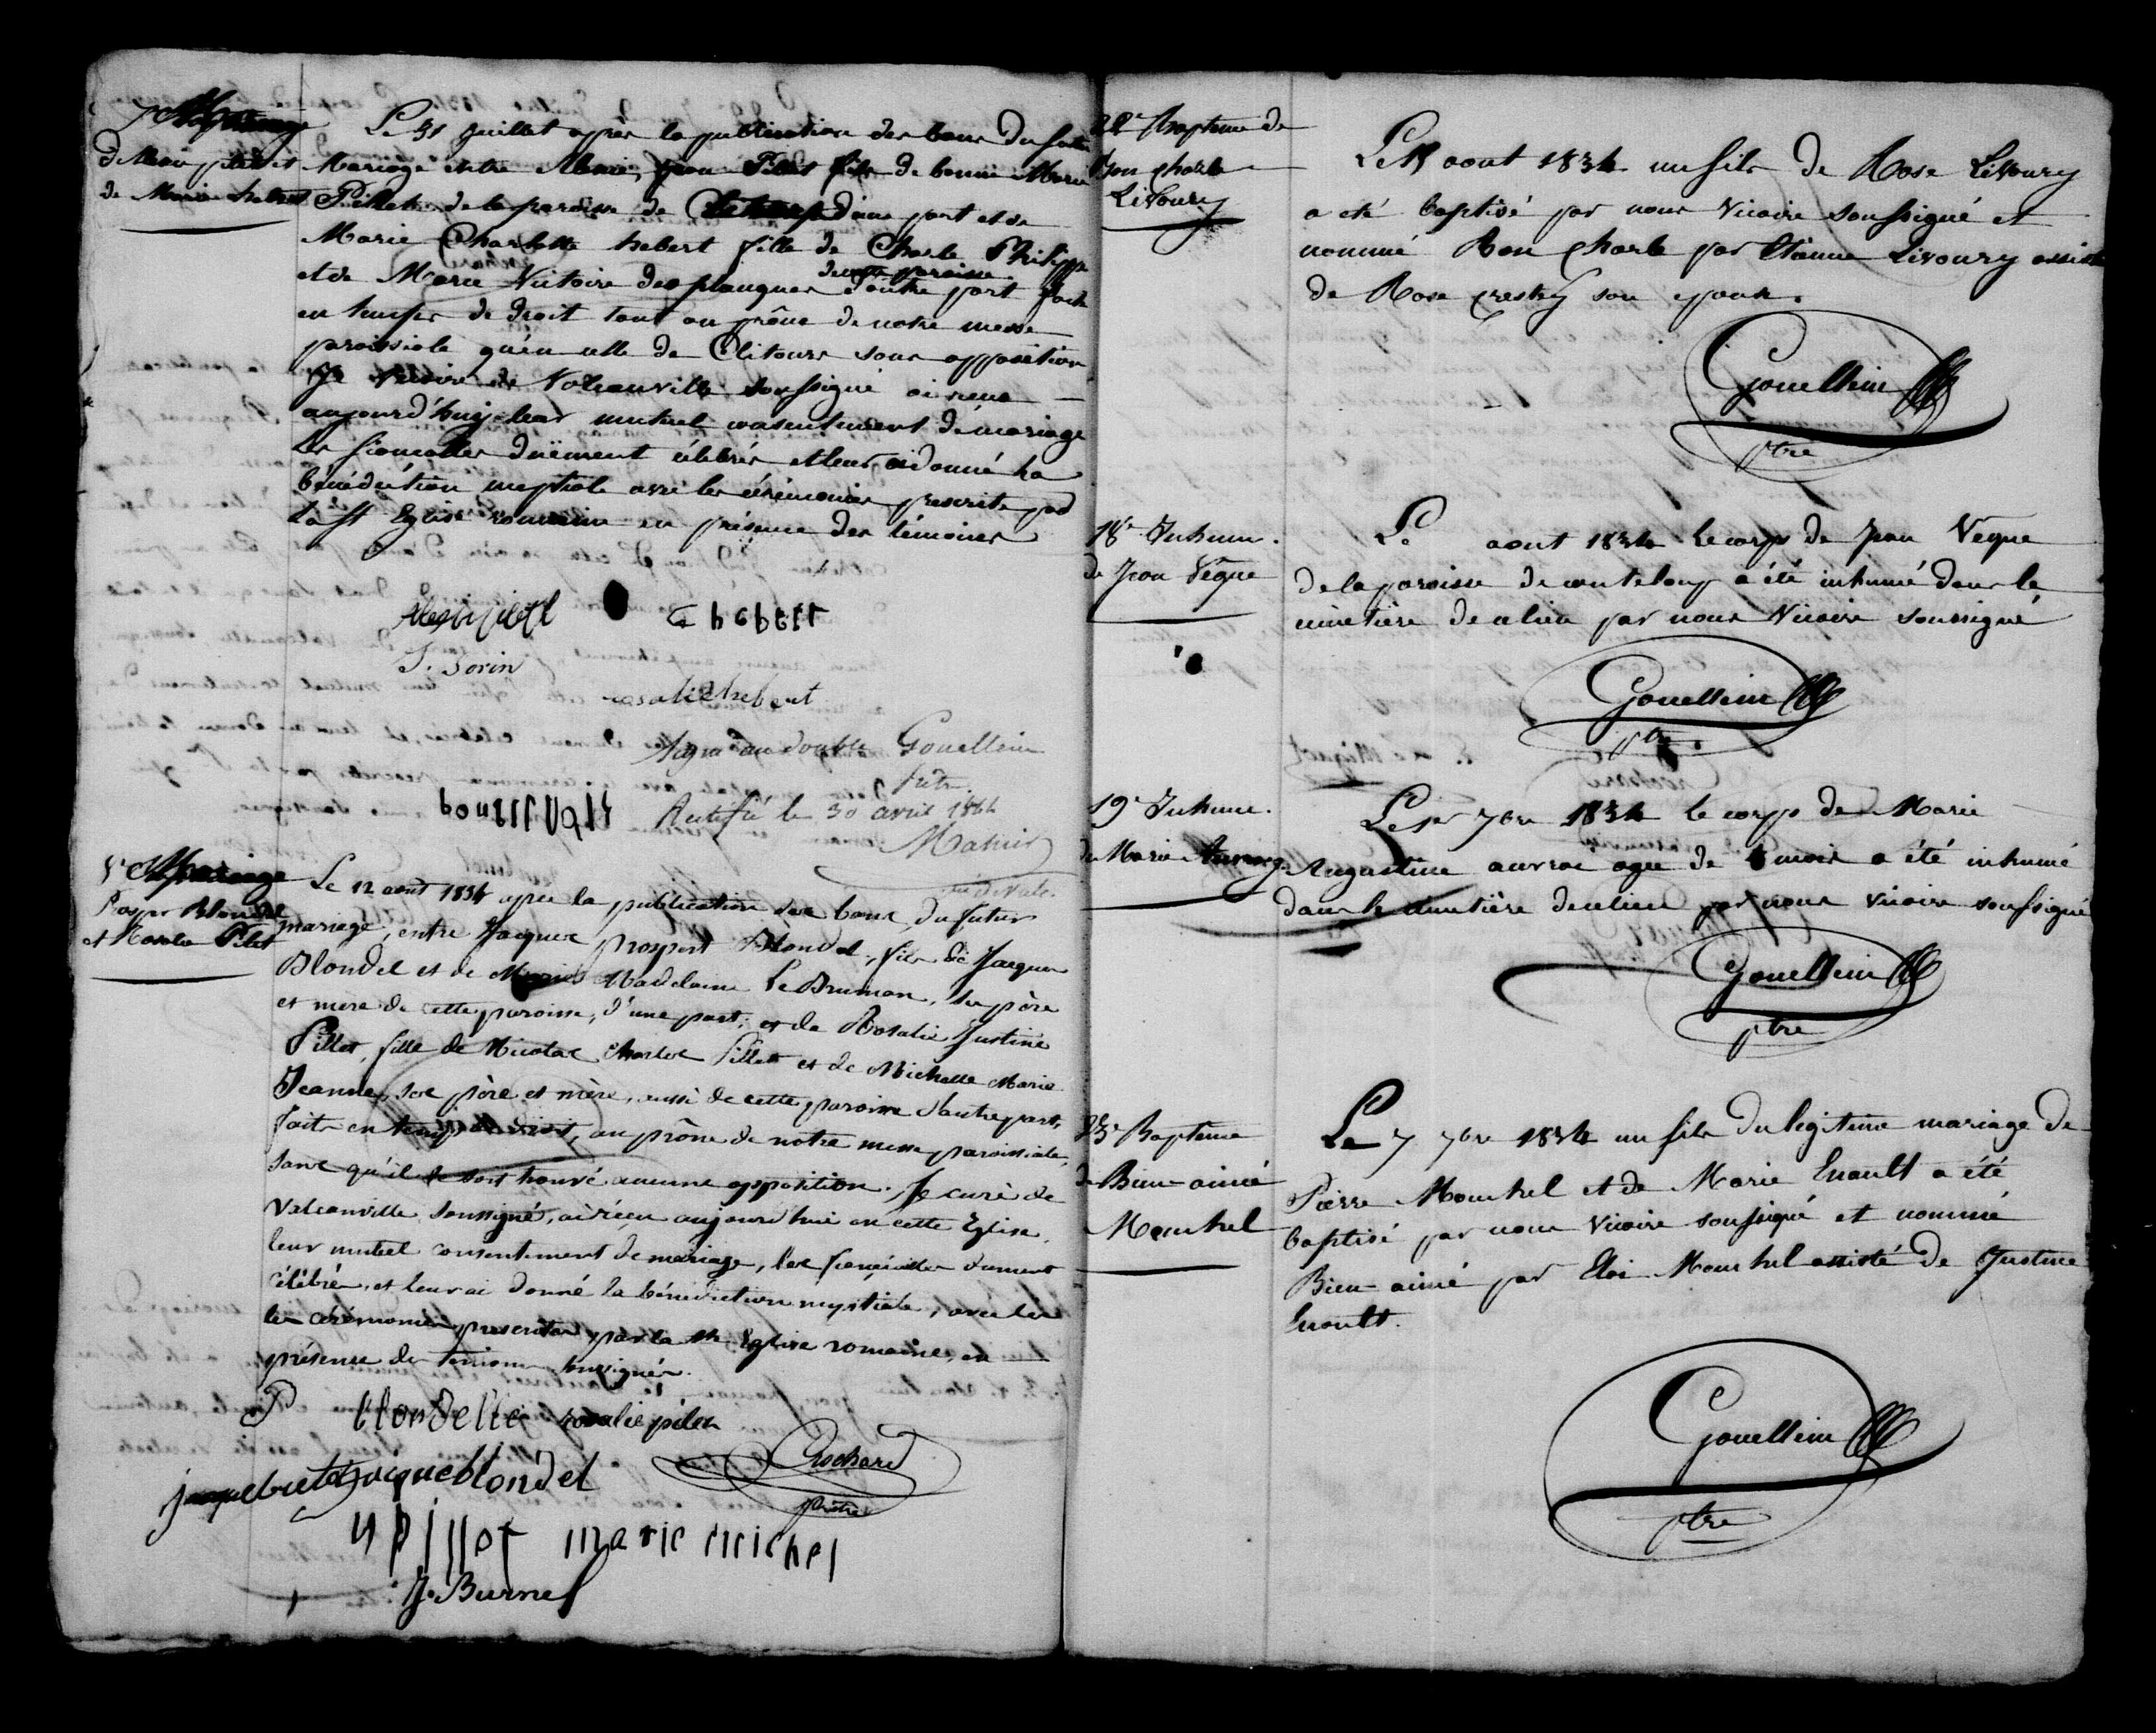 7e Mariage
de Jean pillet et
de Marie hebert
Le 31 juillet après la publication des bans du futur
Mariage entre Alexis, Jean Pillet fils de bonne Marie
Pillet de la paroisse de d'une part et de
Marie Charlotte hebert fille de Charle Philippe
de cette paroisse
et de Marie Victoire desplanques d'autre part faite
en temps de droit tant au prône de notre messe
paroissiale qu'en celle de Clitours sans opposition
Je Vicaire de Valcanville soussigné ai reçu
aujourd'huy leur mutuel consentement de mariage
les fiancailles duëment célébrés et leur ai donné la
bénédiction nuptiale avec les cérémonies prescrite par
la st Eglise romaine en présence des témoins
Alexis pilet
c hebert
J. Sorin
rosalie hebert
Signé au double Gouellain
ptre.
Rectifié le 30 avril 1844
Mahier
8e Mariage
Prosper Blondel
et Rosalie Pilet
Le 12 aout 1834 après la publication des bans du futur
mariage, entre Jacques prospert Blondel, fils de Jacques
Blondel et de Marie Madelaine Le Bruman, ses père
et mere de cette paroisse, d'une part; et de Rosalie Justine
Pillet, fille de Nicolas Charles Pillet et de Michelle Marie
Jeanne, ses père et mère, aussi de cette paroisse d'autre part,
faite en temps de droit, au prône de notre messe paroissiale,
sans qu'il se soit trouvé aucune opposition. Je curé de
Valcanville soussigné, ai reçu aujourd'hui en cette Eglise,
leur mutuel consentement de mariage, les fiançailles dument
célébrés, et leur ai donné la bénédiction nuptiale, avec les
les cérémonies prescrites par la ste Eglise romaine, en
présence des temoins soussignés.
P blondelle rosalie pilet
Jacque blondel
Rochard
prêtre
n pillet marie michel
J. Burnel
22e Baptême de
Bon Charle
Livoury
Le 15 aout 1834 un fils de Rose Livoury
a eté baptisé par nous Vicaire soussigné et
nommé Bon Charle par Etienne Livoury assisté
de Rose crestey son epouse.
Gouellain
ptre
18e Inhum.
de Jean Vegue
Le aout 1834 le corps de Jean Vegue
de la paroisse de canteloup a été inhumé dans le
cimetière de ce lieu par nous Vicaire soussigné
Gouellain
ptre.
19e Inhum.
de Marie
Le 1er 7bre 1834 le corps de Marie
Augustine auvrai agée de mois a été inhumé
dans le cimetière de ce lieu par nous vicaire soussigné
Gouellain
ptre
23e Baptême
de Bien-aimé
Mouchel
Le 7 7bre 1834 un fils du légitime mariage de
Pierre Mouchel et de Marie Enault a été
baptisé par nous Vicaire soussigné et nommé
Bien-aimé par Eloi Mouchel assisté de Justine
Enault.
Gouellain
ptre